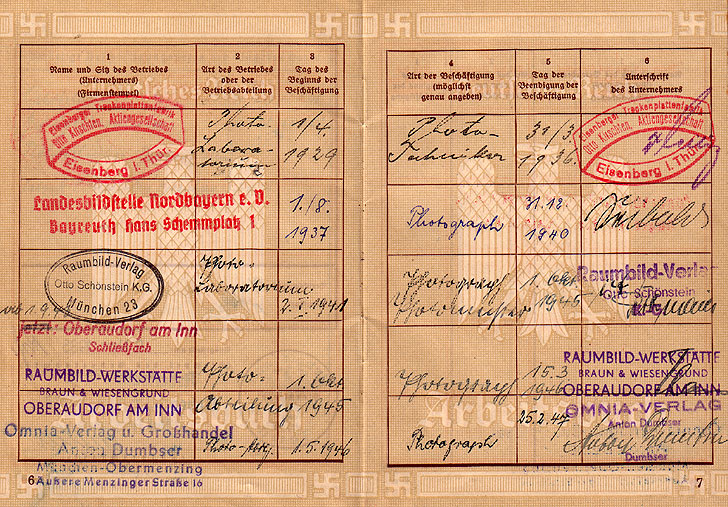 1
Name und Sitz des Betriebes
(Unternehmers)
(Firmenstempel)
2
Art des Betriebes
oder der
Betriebsabteilung
3
Tag des
Beginns der
Beschäftigung
Eisenberger Trockenplattenfabrik
Otto Kirschten, Aktiengesellschaft
Eisenberg i. Thür.
Photo-
Labora-
torium
1/4.
1929
Landesbildstelle Nordbayern e. V.
Bayreuth Hans Schemmplatz 1
1./8.
1937
Raumbild-Verlag
Otto Schönstein K.G.
München 23
Photo-
Laboratorium
2. I. 1941
jetzt: Oberaudorf am Inn
Schließfach
RAUMBILD-WERKSTÄTTE
BRAUN & WIESENGRUND
OBERAUDORF AM INN
Photo-
Abteilung
1. Okt
1945
Omnia-Verlag u. Großhandel
Anton Dumbser
München-Obermenzing
Äußere Menzinger Straße 16
Photo-Abtg.
1.5.1946
6
4
Art der Beschäftigung
(möglichst
genau angeben)
5
Tag der
Beendigung der
Beschäftigung
6
Unterschrift
des Unternehmers
Photo-
Techniker
31/3.
1936.
Eisenberger Trockenplattenfabrik
Otto Kirschten, Aktiengesellschaft
Eisenberg i. Thür.
Photograph
31.12.
1940
Photograph
Photomeister
1. Okt
1945
Raumbild-Verlag
Otto Schönstein
K.G.
Photograph
15.3
1946
RAUMBILD-WERKSTÄTTE
BRAUN & WIESENGRUND
OBERAUDORF AM INN
Photograph
25.2.47
OMNIA-VERLAG
Anton Dumbser
Dumbser
7